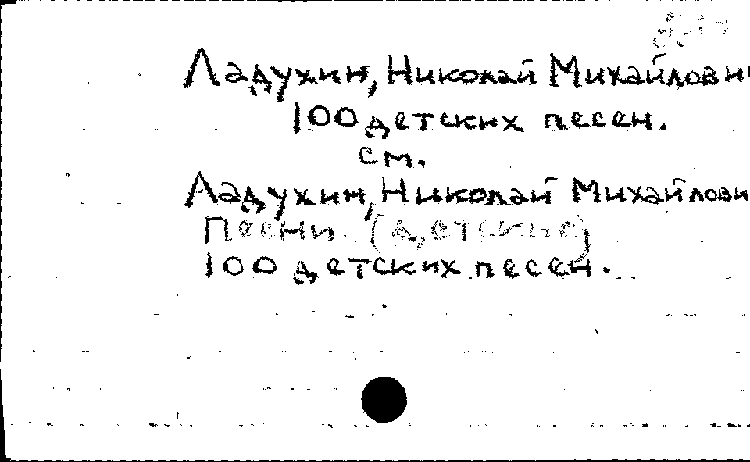 Ладухин, Николай Михайлови
100 детских песен.
см.
Ладухин, Николай Михайлови
Песни. (детские)
100 детских песен.